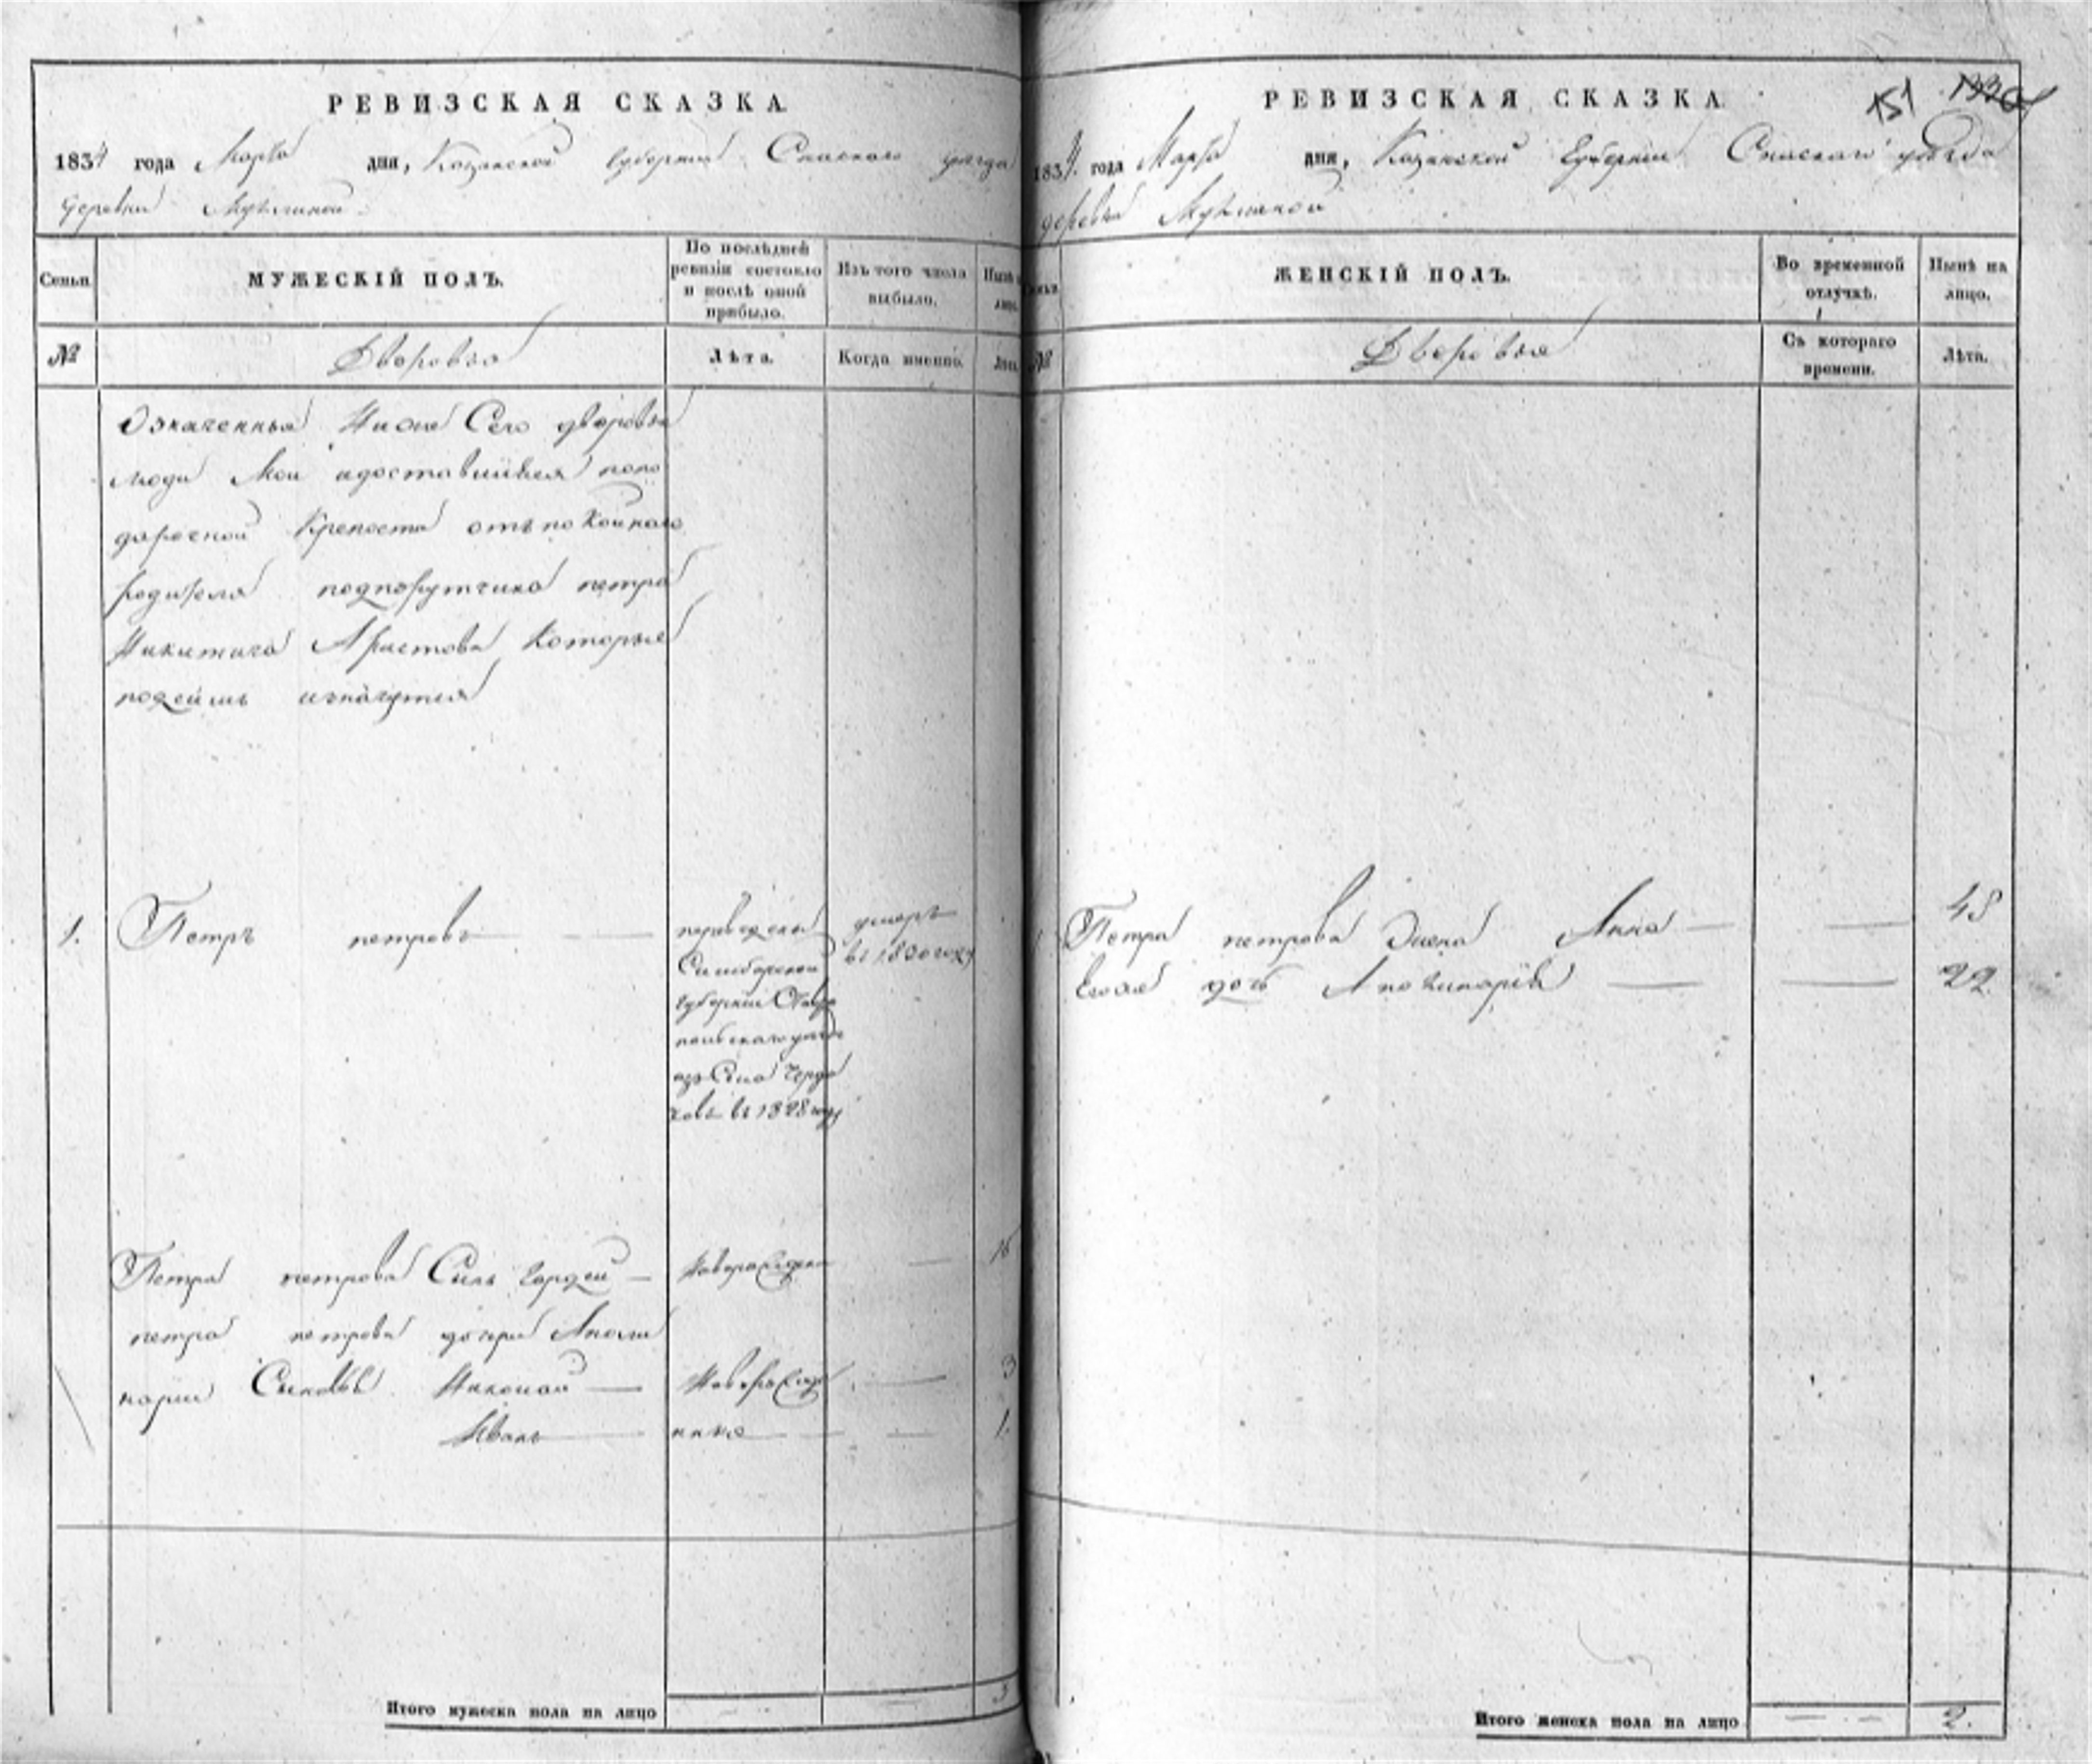 РЕВИЗСКАЯ СКАЗКА
1834 года Марта дня, Казанской губернии Спаскаго уезда
деревни
Семьи
МУЖЕСКІЙ ПОЛЪ.
По послѣдней
ревизіи состояло
и послѣ оной
прибыло.
Изъ того числа
выбыло.
Нынѣ на
лицо.
№
Дворовыя
Лѣта.
Когда именно.
Лѣта.
Означенныя ниже сего дворовыя
люди мои адоставшиеся мне по
дарсной крепости отъ покойнаго
родителя подпорутчика петра
Никитича Аристова которые
значутся
1. Петръ петровъ
переведены
Симбирской
губернии Став
ропольскаго уезда
изъ села Черда
въ 1828 году
умеръ
въ 1830 году
Петра петрова Сынъ Гордей — новорожденъ — 16
петра петрова дочери Аполи
нарии Сыновья Николай — новорожде — 3
Иванъ — нные — 1.
Итого мужеска пола на лицо 3
РЕВИЗСКАЯ СКАЗКА
151
1834 года Марта дня, Казанской Губернии Спаскаго уезда
деревни
Семьи
ЖЕНСКІЙ ПОЛЪ.
Во временной
отлучкѣ.
Нынѣ на
лицо.
№
Дворовыя
Съ котораго
времени.
Лѣта.
Петра петрова жена Анна — — 45
Его же дочь Аполинария — — 22
Итого женска пола на лицо — 2.